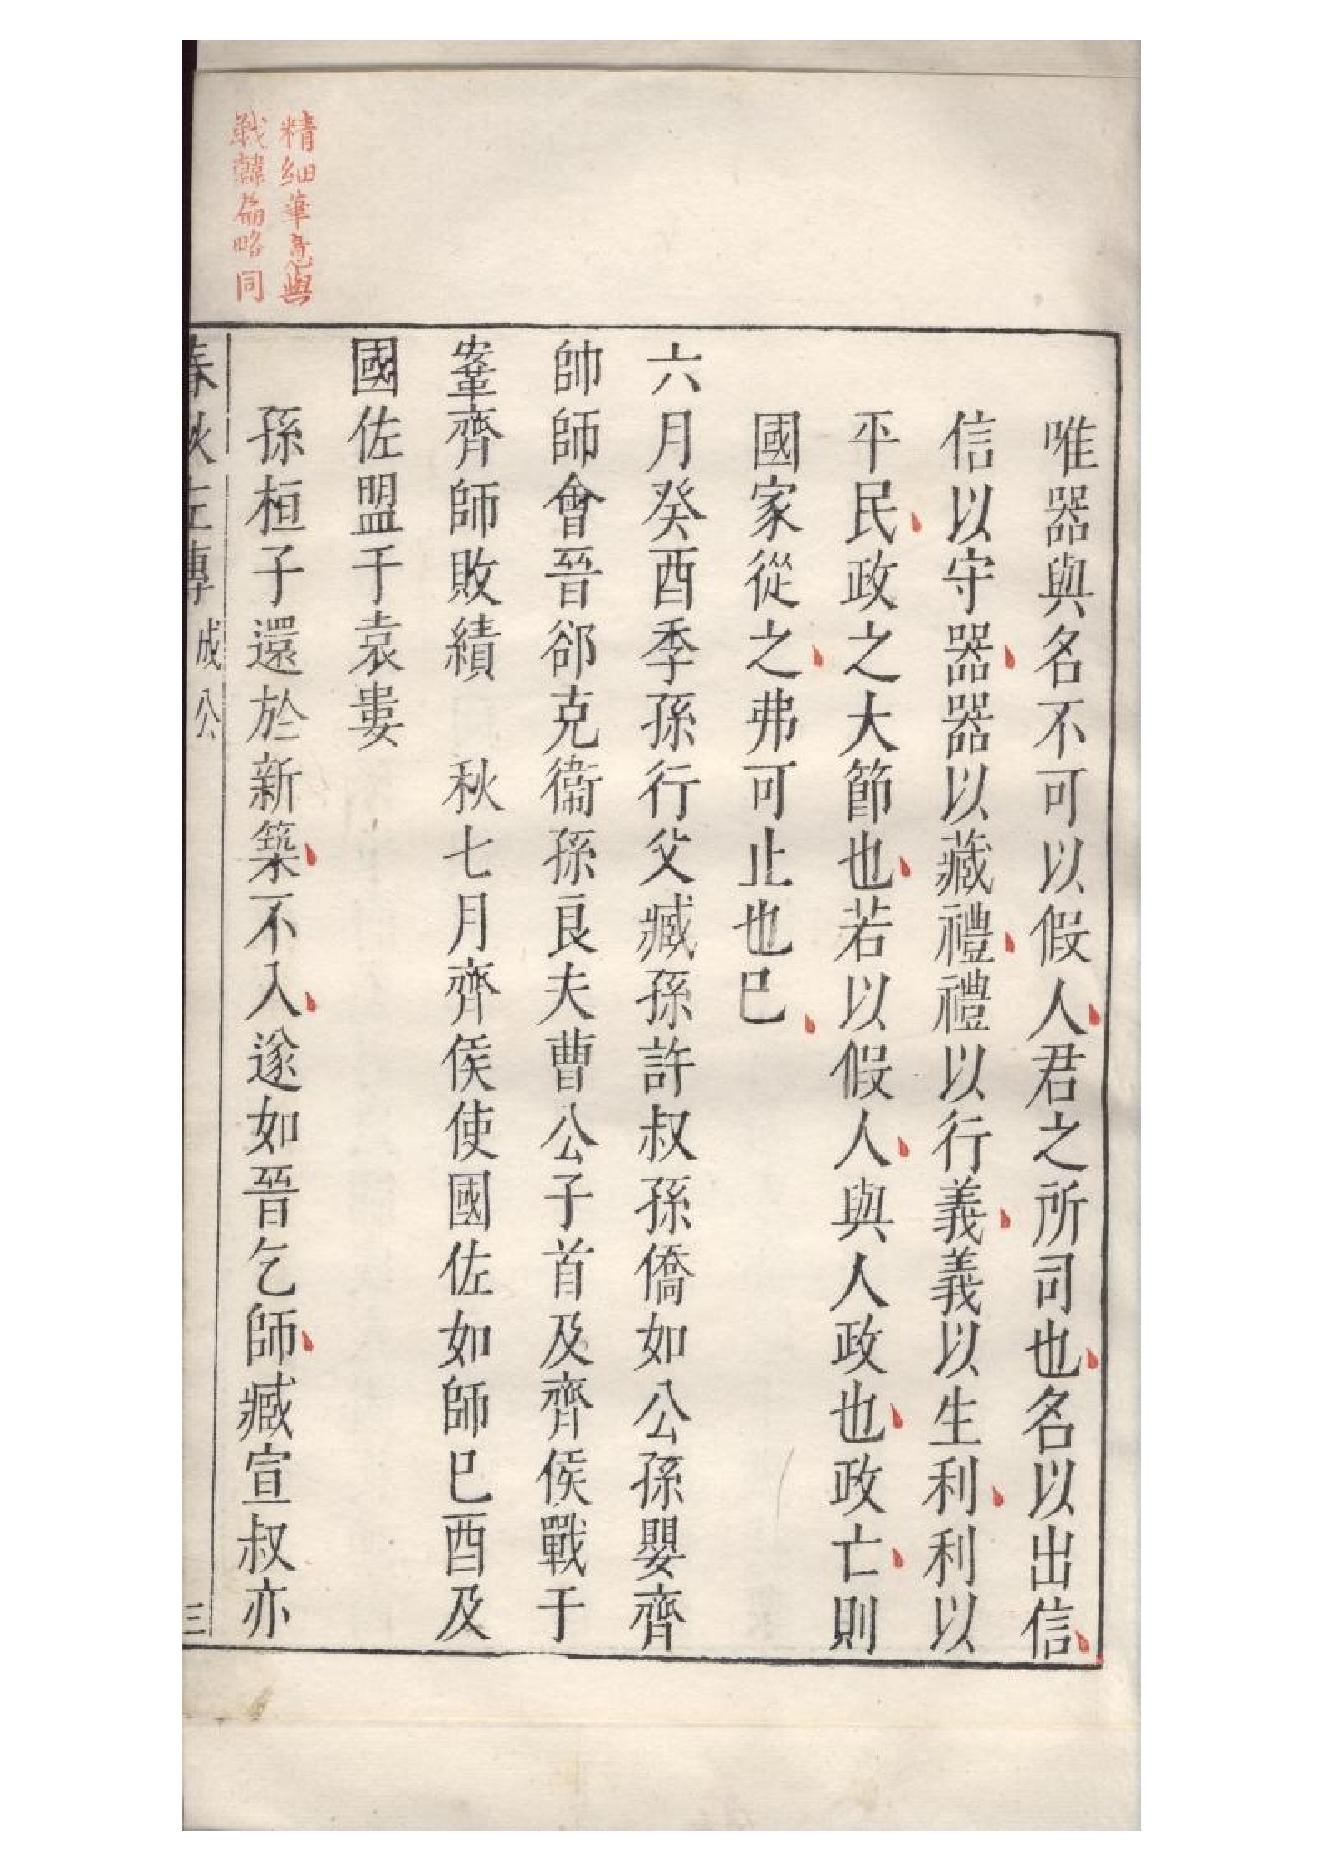 精細華意與
戰韓篇略同
唯器與名不可以假人君之所司也名以出信
信以守器器以藏禮禮以行義義以生利利以
平民政之大節也若以假人與人政也政亡則
國家從之弗可止也巳
六月癸酉季孫行父臧孫許叔孫僑如公孫嬰齊
帥師會晉郤克衞孫良夫曹公子首及齊侯戰于
鞌齊師敗績　秋七月齊侯使國佐如師巳酉及
國佐盟于袁婁
孫桓子還於新築不入遂如晉乞師臧宣叔亦
春秋左傳　成公　三